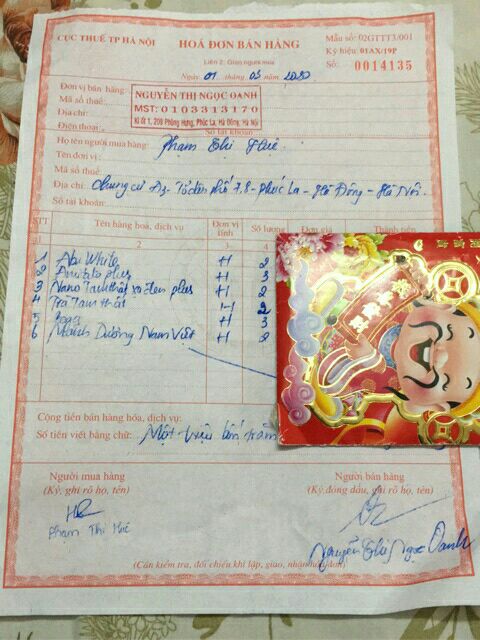 CỤC THUẾ TP HÀ NỘI
HOÁ ĐƠN BÁN HÀNG
Mẫu số: 02GTTT3/001
Liên 2: Giao người mua
Ký hiệu: 01AX/19P
Ngày 01 tháng 03 2020
Số: 0014135
Đơn vị bán hàng:
NGUYỄN THỊ NGỌC OANH
Mã số thuế:
MST: 0103313170
Địa chỉ:
Ki ốt 1, 209 Phùng Hưng, Phúc La, Hà Đông, Hà Nội
Điện thoại:
Số tài khoản
Họ tên người mua hàng: Phạm Thị Huê
Tên đơn vị:
Mã số thuế
Địa chỉ: Chung cư Tổ dân phố 7,8 - Phúc La - Hà Đông - Hà Nội.
Số tài khoản:
STT Tên hàng hoá, dịch vụ Đơn vị tính Số lượng Đơn giá Thành tiền
2 3 4
1 White H 2
2 plus H 3
3 Nano Tam thất xạ đen plus H 2
4 Trà Tam thất H 2
5 H 3
6 Mãnh Dương Nam Việt H 2
Cộng tiền bán hàng hóa, dịch vụ:
Số tiền viết bằng chữ: Một triệu bốn trăm
Người mua hàng
Người bán hàng
(Ký, ghi rõ họ, tên)
(Ký, đóng dấu, ghi rõ họ, tên)
Phạm Thị Huê
Nguyễn Thị Ngọc Oanh
(Cần kiểm tra, đối chiếu khi lập, giao, nhận hoá đơn)